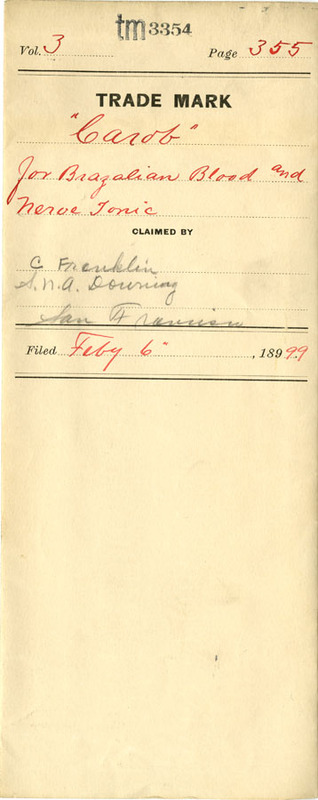 tm 3354
Vol. 3 Page 355
TRADE MARK
"Carob"
for Brazalian Blood and
Nerve Tonic
CLAIMED BY
C Franklin
S.N.A. Downing
San Francisco
Filed Feby 6" , 18999